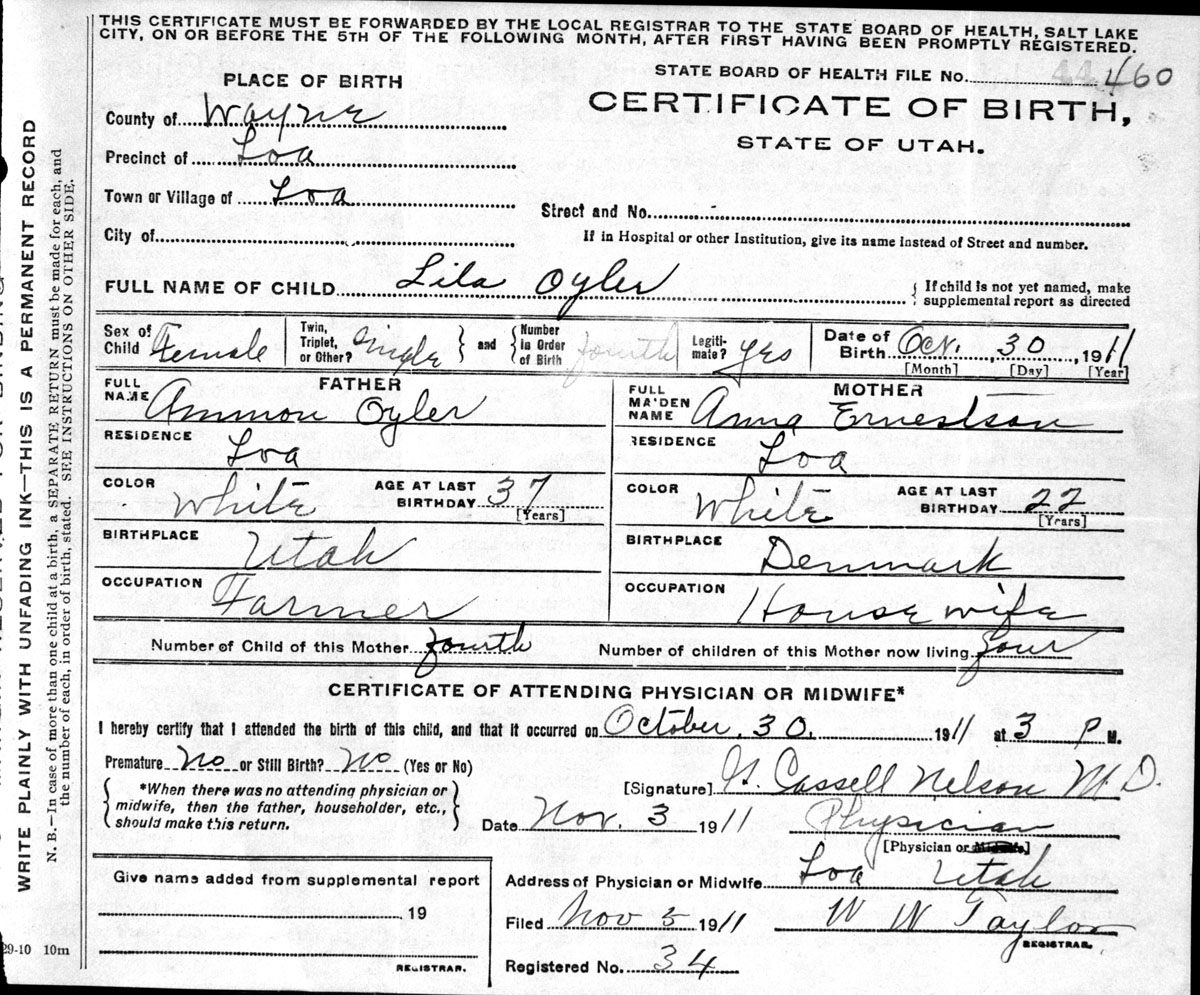 THIS CERTIFICATE MUST BE FORWARDED BY THE LOCAL REGISTRAR TO THE STATE BOARD OF HEALTH, SALT LAKE
CITY, ON OR BEFORE THE 5TH OF THE FOLLOWING MONTH, AFTER FIRST HAVING BEEN PROMPTLY REGISTERED.
WRITE PLAINLY WITH UNFADING INK—THIS IS A PERMANENT RECORD
N. B.—In case of more than one child at a birth, a SEPARATE RETURN must be made for each, and
the number of each, in order of birth, stated. SEE INSTRUCTIONS ON OTHER SIDE.
PLACE OF BIRTH
STATE BOARD OF HEALTH FILE No. 460
County of Wayne
CERTIFICATE OF BIRTH,
STATE OF UTAH.
Precinct of Loa
Town or Village of Loa
Street and No.
City of
If in Hospital or other Institution, give its name instead of Street and number.
FULL NAME OF CHILD Lila Oyler { If child is not yet named, make
supplemental report as directed
Sex of Child Female
Twin, Triplet, or Other? Single } and { Number in Order of Birth fourth
Legiti-mate? yes
Date of Birth Oct. 30, 1911
[Month] [Day] [Year]
FATHER
FULL NAME Ammon Oyler
MOTHER
FULL MAIDEN NAME Anna Ernestson
RESIDENCE Loa
RESIDENCE Loa
COLOR White AGE AT LAST BIRTHDAY 37 [Years]
COLOR White AGE AT LAST BIRTHDAY 22 [Years]
BIRTHPLACE Utah
BIRTHPLACE Denmark
OCCUPATION Farmer
OCCUPATION House wife
Number of Child of this Mother fourth Number of children of this Mother now living four
CERTIFICATE OF ATTENDING PHYSICIAN OR MIDWIFE*
I hereby certify that I attended the birth of this child, and that it occurred on October, 30, 1911 at 3 P M.
Premature No or Still Birth? No (Yes or No)
[Signature] Cassell Nelson M.D.
{ *When there was no attending physician or
midwife, then the father, householder, etc.,
should make this return. }
Date Nov. 3 1911 Physician
[Physician or Midwife]
Give name added from supplemental report
19
REGISTRAR.
Address of Physician or Midwife Loa Utah
Filed Nov 5 1911 W W Taylor
REGISTRAR.
Registered No. 34
29-10 10m